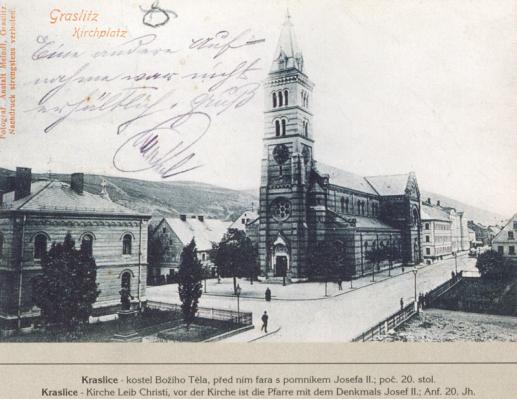 Graslitz
Kirchplatz
Eine andere Auf-
nahme war nicht
erhältlich. Gruß
Photograf. Anstalt Meindl, Graslitz.
Nachdruck strengstens verboten.
Kraslice - kostel Božího Těla, před ním fara s pomníkem Josefa II.; poč. 20. stol.
Kraslice - Kirche Leib Christi, vor der Kirche ist die Pfarre mit dem Denkmals Josef II.; Anf. 20. Jh.